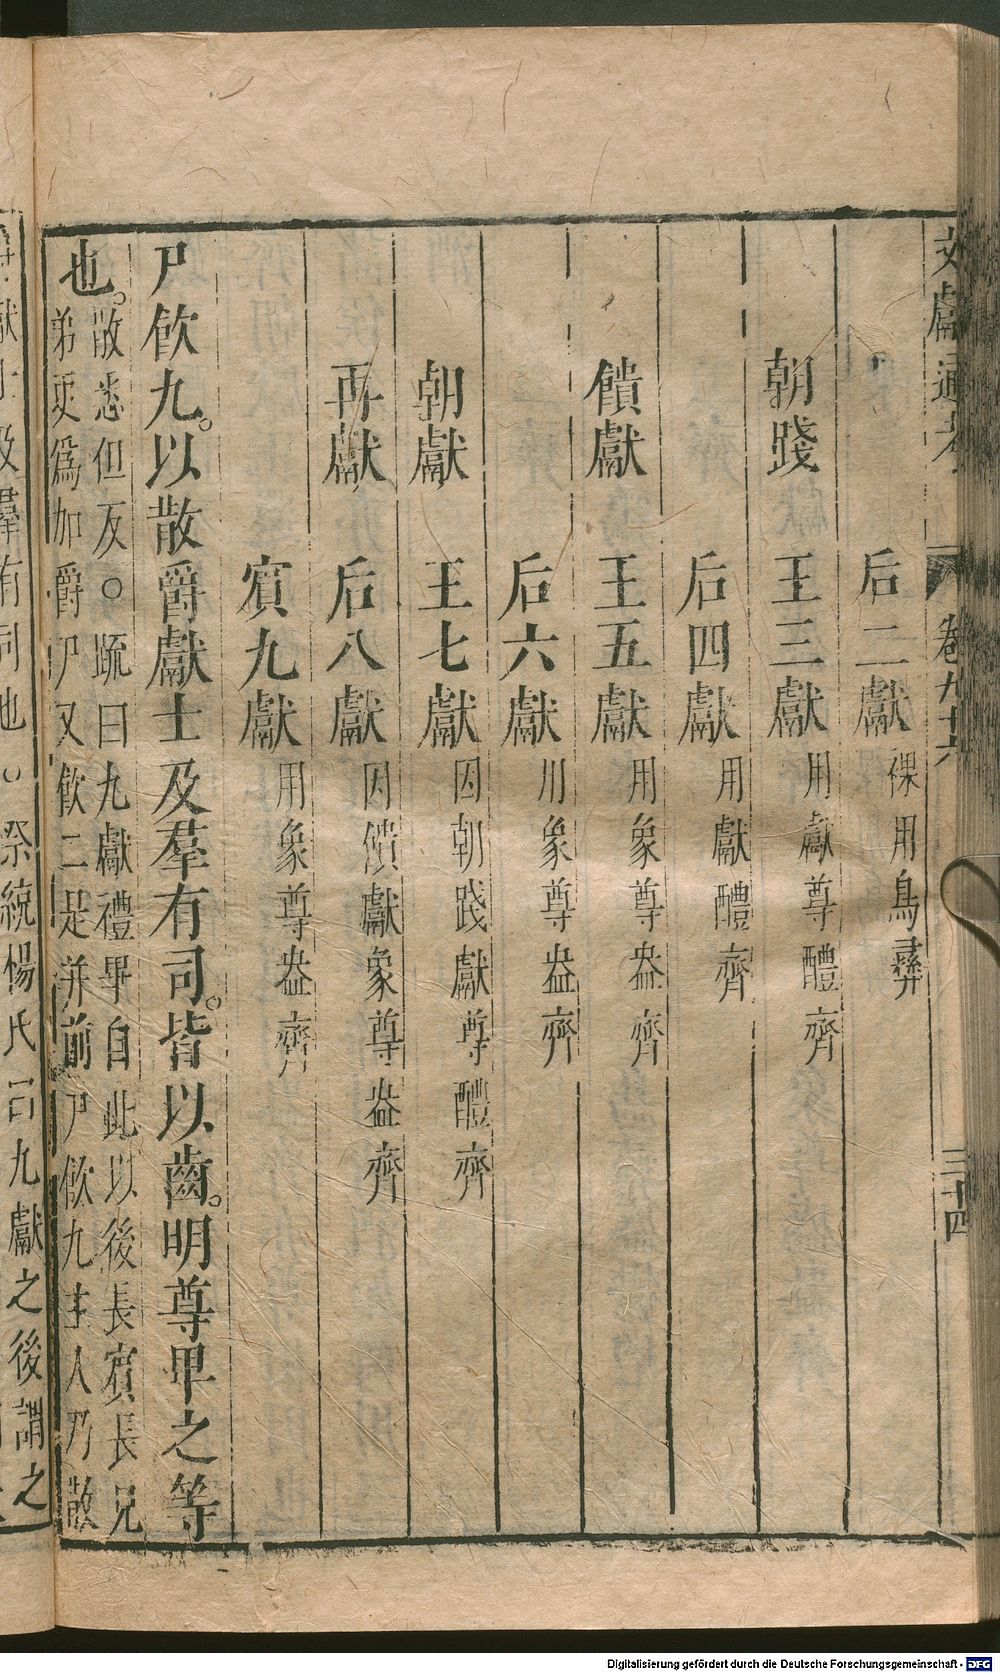 文獻通考 卷九十六 三十四
后二獻 祼用鳥彛
朝踐 王三獻 用獻尊醴齊
后四獻 用獻醴齊
饋獻 王五獻 用象尊盎齊
后六獻 用象尊盎齊
朝獻 王七獻 因朝踐獻尊醴齊
再獻 后八獻 因饋獻象尊盎齊
賓九獻 用象尊盎齊
尸飲九。以散爵獻士及羣有司。皆以齒。明尊卑之等
也。散悉但反○疏曰九獻禮畢自此以後長賓長兄
弟更爲加爵尸又飲二是并前尸飲九主人乃散
爵獻士及羣有司也○祭統楊氏曰九獻之後謂之
Digitalisierung gefördert durch die Deutsche Forschungsgemeinschaft - DFG